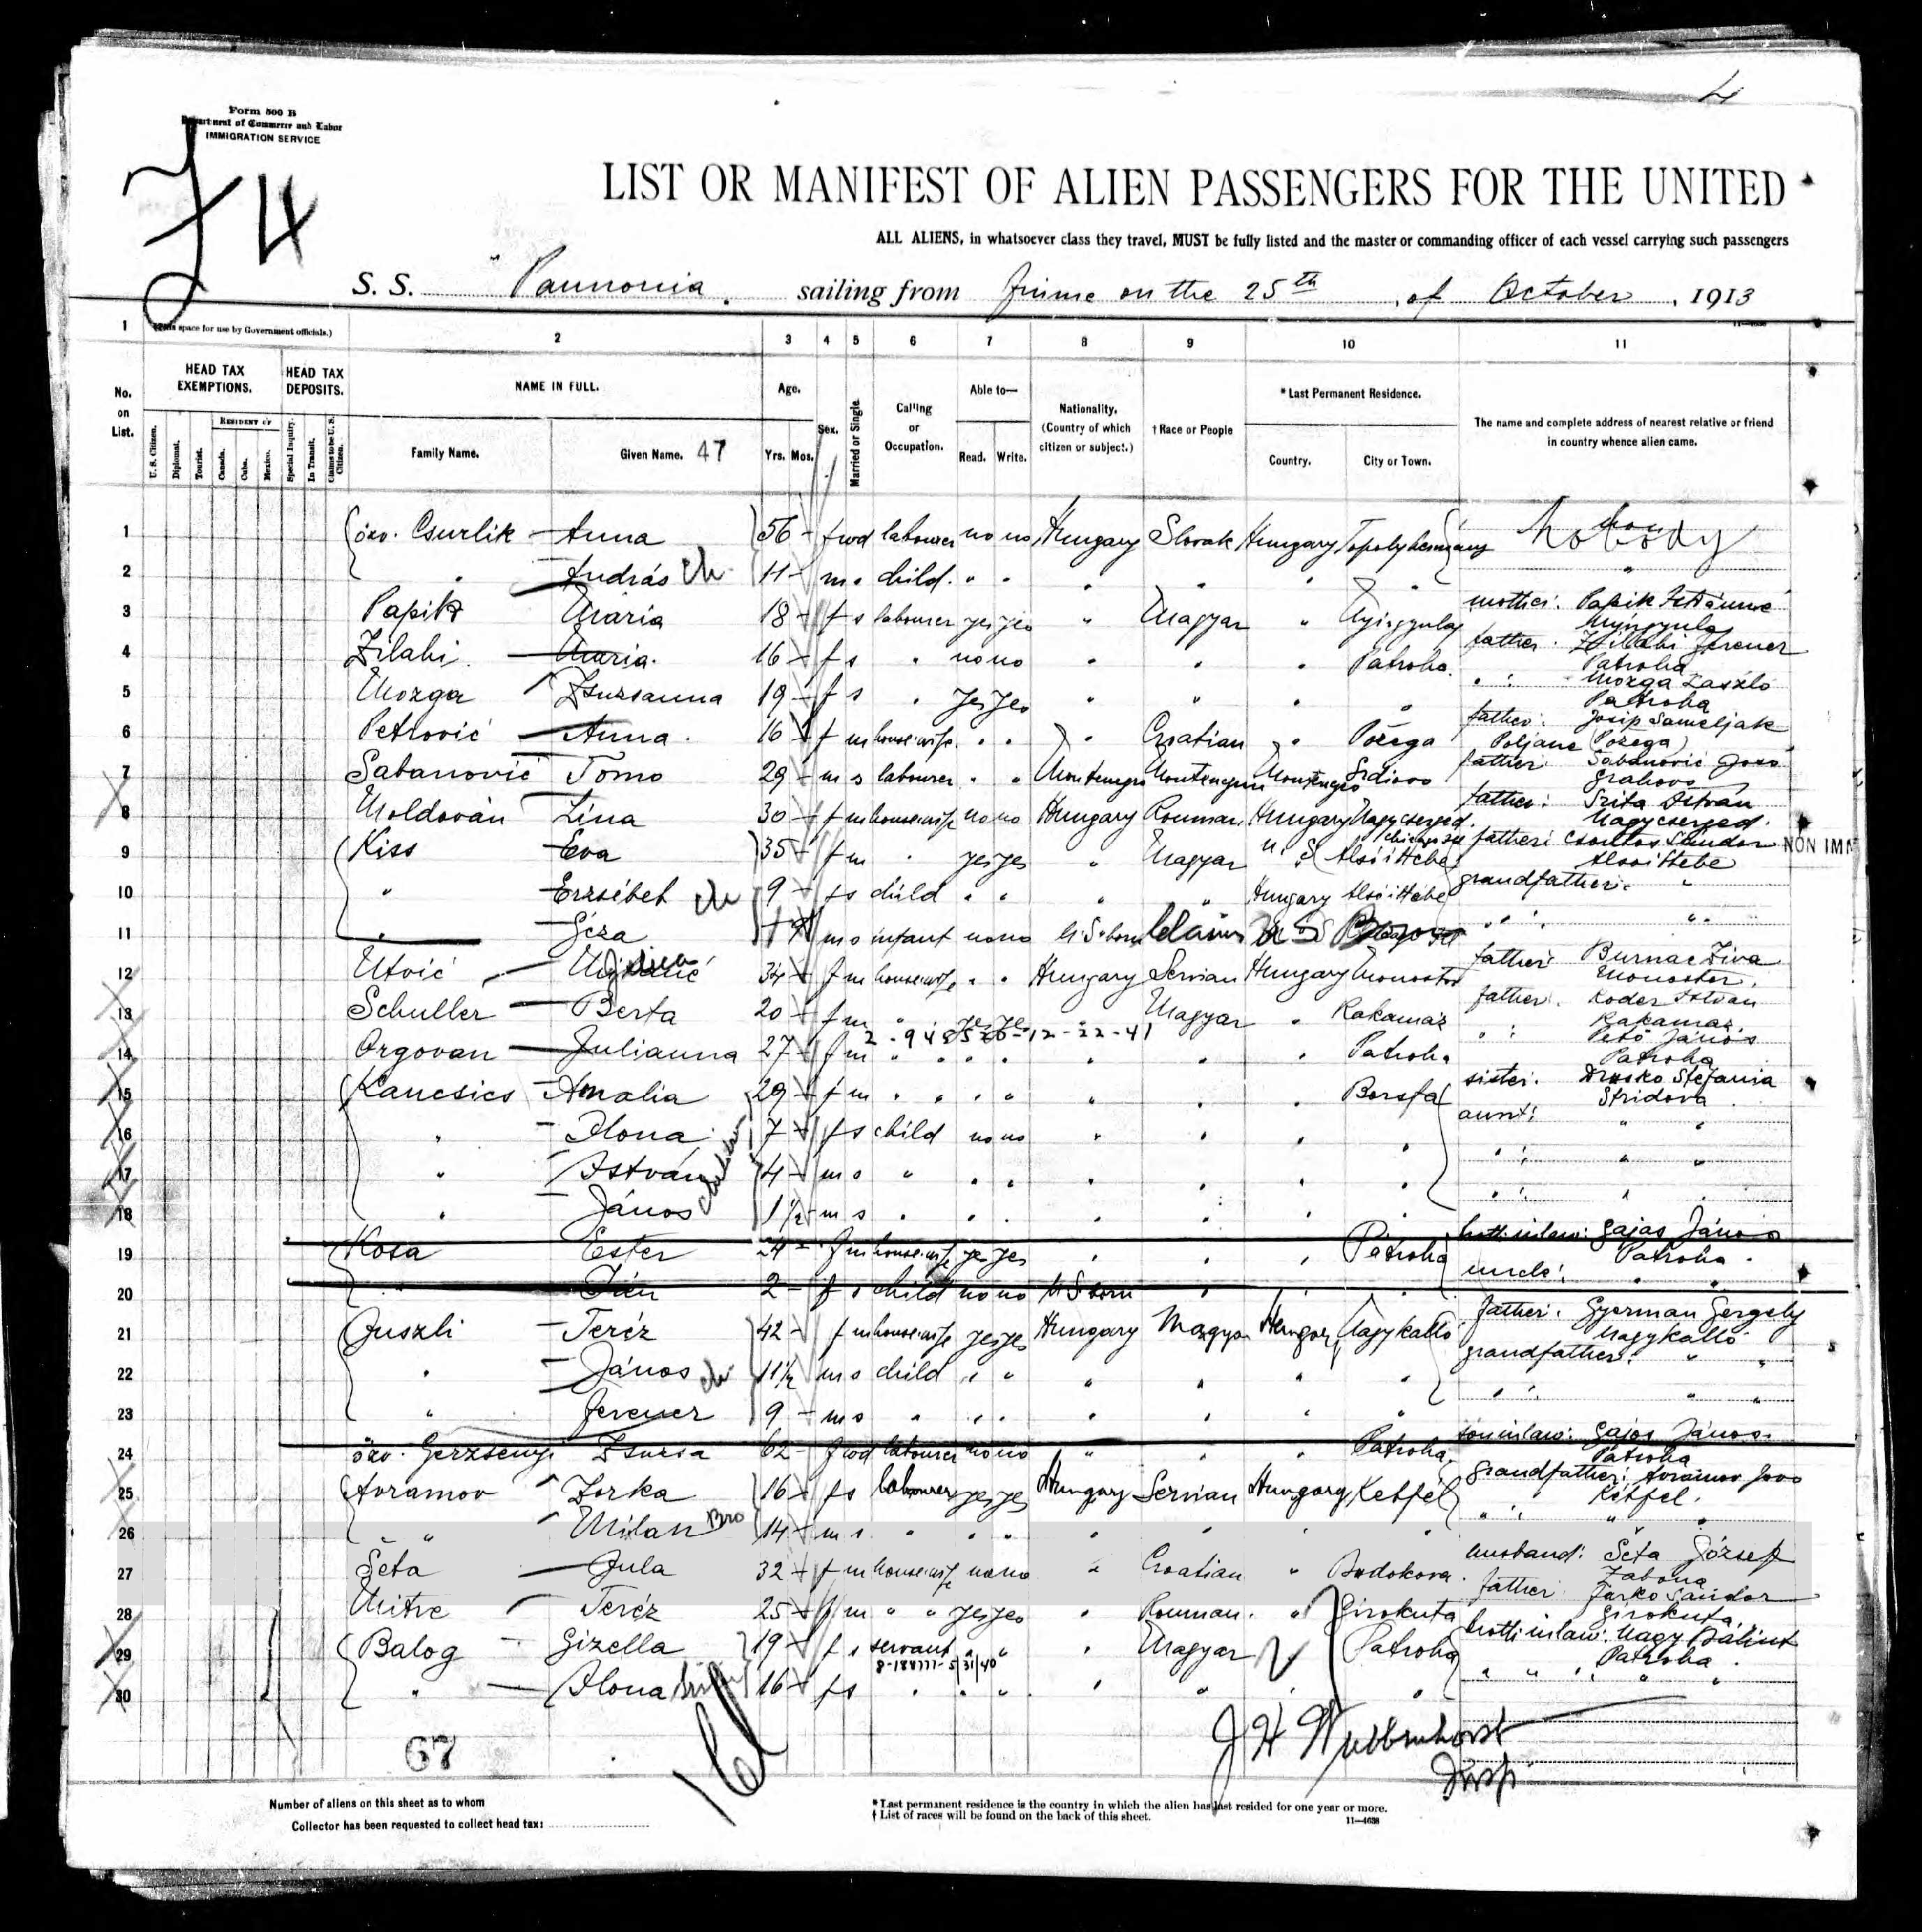 4
Form 500 B
Department of Commerce and Labor
IMMIGRATION SERVICE
J 4
LIST OR MANIFEST OF ALIEN PASSENGERS FOR THE UNITED
ALL ALIENS, in whatsoever class they travel, MUST be fully listed and the master or commanding officer of each vessel carrying such passengers
S. S. "Pannonia. sailing from Fiume on the 25th, of October, 1913
11—4638
1 (This space for use by Government officials.) 2 3 4 5 6 7 8 9 10 11
No. on List. HEAD TAX EXEMPTIONS. HEAD TAX DEPOSITS. NAME IN FULL. Age. Sex. Married or Single. Calling or Occupation. Able to— Nationality. (Country of which citizen or subject.) † Race or People * Last Permanent Residence. The name and complete address of nearest relative or friend in country whence alien came.
U. S. Citizen. Diplomat. Tourist. RESIDENT OF Canada. Cuba. Mexico. Special Inquiry. In Transit. Claims to be U. S. Citizen. Family Name. Given Name. 47 Yrs. Mos. Read. Write. Country. City or Town.
1 özv. Csurlik Anna 56 f wd labourer no no Hungary Slovak Hungary nobody
2 " András ch 11 m s child " " " " " "
3 Papik Mária 18 f s labourer yes yes " Magyar " mother: Papik
4 Zilahi Mária 16 f s " no no " " " Patroha father: Zilahi Ferencz Patroha
5 Mozga Zsuzsanna 19 f s " yes yes " " " " " : Mozga László Patroha
6 Petrović Anna 16 f m housewife " " " Croatian " Požega father: Josip Poljane (Požega)
7 Sabanović Tomo 29 m s labourer " " Montenegro Montenegrin Montenegro father: Sabanović Joko Grahovo
8 Moldován Lina 30 f m housewife no no Hungary Rouman. Hungary Nagycserged father: István Nagycserged.
9 Kiss Eva 35 f m " yes yes " Magyar U. S. father: Csontos Sándor NON IMM
10 " Erzsébet ch 9 f s child " " " " Hungary grandfather: "
11 " Géza m s infant no no U.S. born Claims U S " : "
12 Utvić 34 f m housewife " " Hungary Servian Hungary Monostor father: Burnac Živa Monostor.
13 Schuller Berta 20 f m " yes yes Magyar " Rakamaz father: Koder István Rakamaz
2-948526-12-22-41
14 Orgovan Julianna 27 f m " " " " " " Patroha " : Pető János Patroha
15 Kancsics Amalia 29 f m " " " " " " Borsfa sister: Stefania Stridova
16 " Ilona 7 f s child no no " " " " aunt: " "
17 " István children 4 m s " " " " " " " " : " "
18 " János 1½ m s " " " " " " " " : " "
19 Kosa Ester 24 f m housewife yes yes " " " Patroha Gajas János Patroha
20 " 2 f s child no no U S born " " " uncle: " "
21 Guszli Teréz 42 f m housewife yes yes Hungary Magyar Hungary Nagykálló father: Gyerman Gergely Nagykálló
22 " János ch 11½ m s child " " " " " " grandfather: " "
23 " Ferencz 9 m s " " " " " " " " : " "
24 özv. Gerzsenyi Zsuzsa 62 f wd labourer no no " " " Patroha son inlaw: Gajos János. Patroha
25 Avramov Zorka 16 f s labourer yes yes Hungary Servian Hungary Ketfél grandfather: Avramov Jovo Ketfel.
26 " Milan Bro 14 m s " " " " " " " " : " "
27 Šeta Jula 32 f m housewife no no " Croatian " husband: Šeta József
28 Mitre Teréz 25 f m " " yes yes " Rouman. " Girokuta father: Sándor Girokuta
29 Balog Gizella 19 f s servant " " " Magyar Patroha Nagy Bálint Patroha
8-188777-5|31|40
30 " Ilona 16 f s " " " " " " " " " : " "
67
J H Wubbenhorst
Insp
Number of aliens on this sheet as to whom
Collector has been requested to collect head tax:
* Last permanent residence is the country in which the alien has last resided for one year or more.
† List of races will be found on the back of this sheet.
11—4638